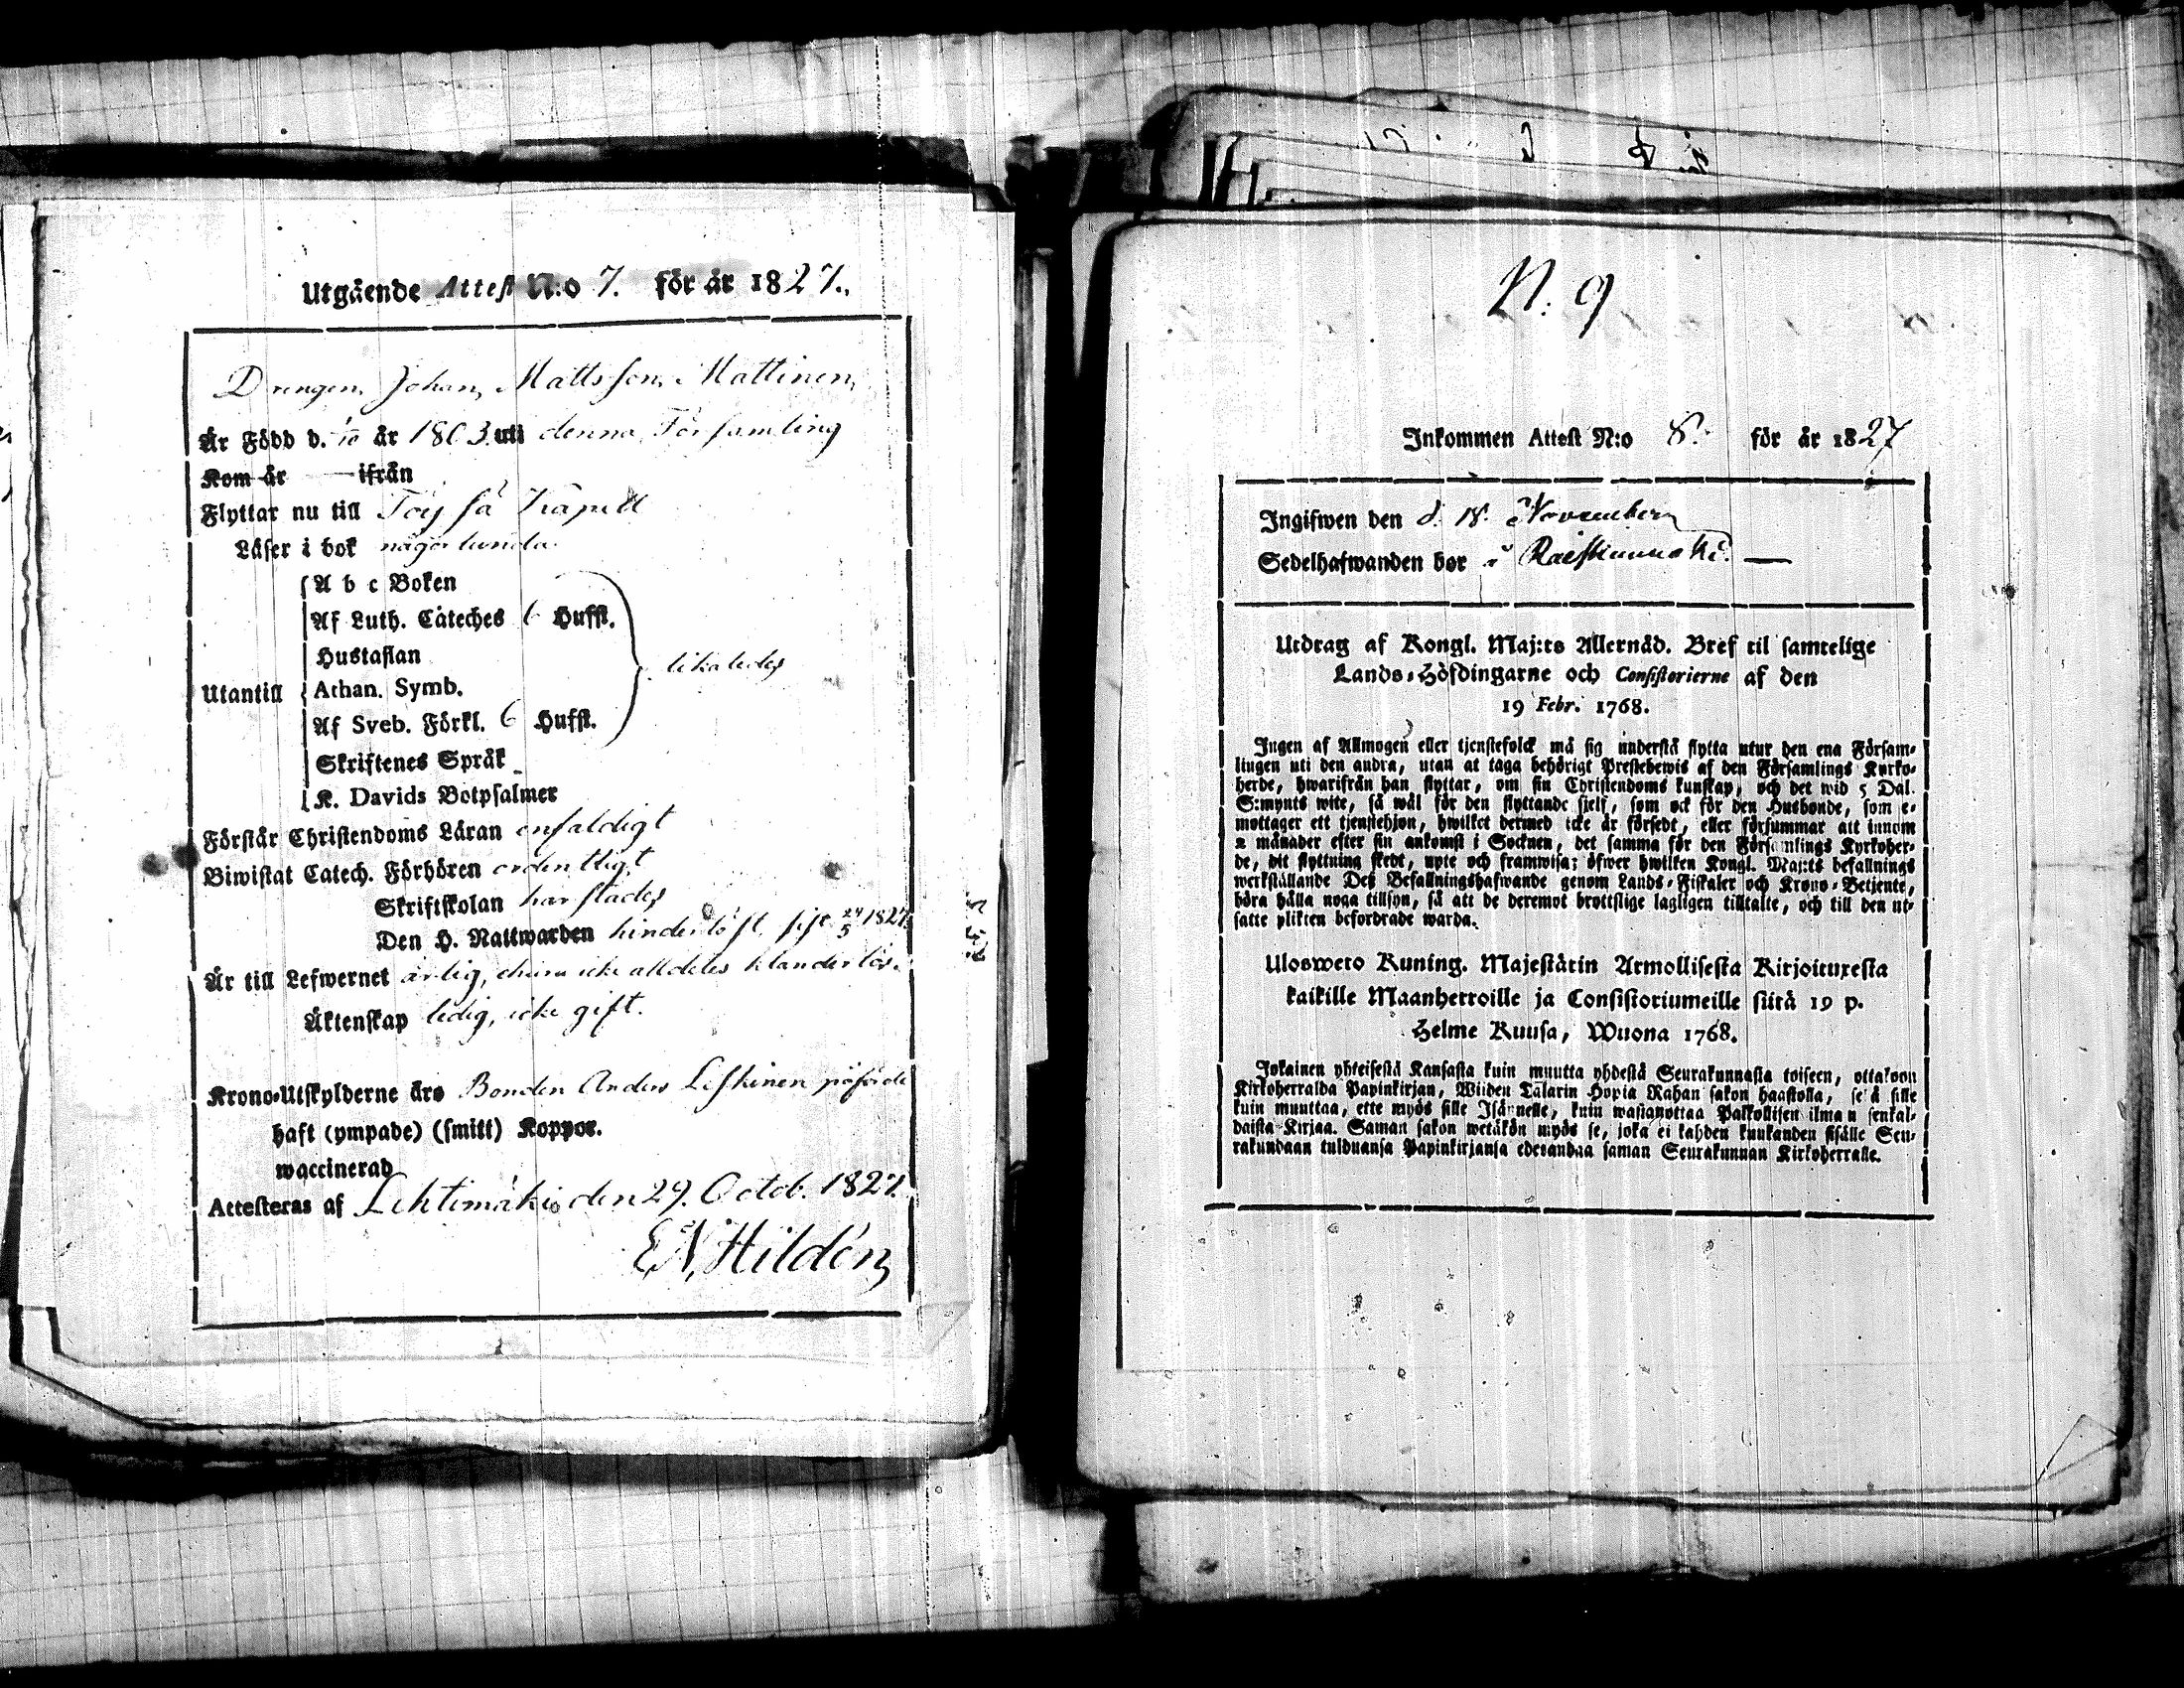 Utgående Attest N:o 7. för år 1827.
Drengen Johan Mattsson Mattinen
Är Född d. år 1803 uti denna Församling
Kom år — ifrån
Flyttar nu till Töysä Kapell
Läser i bok någorlunda
A b c Boken
Af Luth. Cateches 6 Hufst.
Hustaflan
likaledes
Utantill Athan. Symb.
Af Sveb. Förkl. 6 Hufst.
Skriftenes Språk
K. Davids Botpsalmer
Förstår Christendoms Läran enfaldigt
Biwistat Catech. Förhören ordentligt
Skriftskolan
Den H. Nattwarden hinderlöst, sist 24/5 1827.
Är till Lefwernet ärlig, ehuru icke alldeles klanderlös.
Äktenskap ledig, icke gift.
Krono-Utskylderne äro Bonden Anders Leskinen påförde
haft (ympade) (smitt) Koppor.
waccinerad
Attesteras af Lehtimäki den 29. Octob. 1827.
E.N. Hildén
N. 9
Inkommen Attest N:o 8. för år 1827
Ingifwen den d. 18. November
Sedelhafwanden bor å —
Utdrag af Kongl. Maj:ts Allernåd. Bref til samtelige
Lands-Höfdingarne och Consistorierne af den
19 Febr. 1768.
Ingen af Allmogen eller tjenstefolck må sig understå flytta utur den ena Försam-
lingen uti den andra, utan at taga behörigt Prestebewis af den Församlings Kyrko-
herde, hwarifrån han flyttar, om sin Christendoms kunskap, och det wid 5 Dal.
S:mynts wite, så wäl för den flyttande sjelf, som ock för den Husbonde, som e-
mottager ett tjenstehjon, hwilket dermed icke är försedt, eller försummar att innom
2 månader efter sin ankomst i Socknen, det samma för den Församlings Kyrkoher-
de, dit flyttning skedt, upte och framwisa; öfwer hwilken Kongl. Maj:ts befallnings
werkställande Des Befallningshafwande genom Lands-Fiskaler och Krono-Betjente,
böra hålla noga tillsyn, så att de deremot brottslige lagligen tilltalte, och till den ut-
satte plikten befordrade warda.
Uloswero Kuning. Majestätin Armollisesta Kirjoituxesta
kaikille Maanherroille ja Consistoriumeille siitä 19 p.
Helme Kuusa, Wuona 1768.
Jokainen yhteisestä Kansasta kuin muutta yhdestä Seurakunnasta toiseen, ottakoon
Kirkoherralda Papinkirjan, Wiiden Talarin Hopia Rahan sakon haastolla, sekä sille
kuin muuttaa, ette myös sille Isännelle, kuin wastanottaa Palkollisen ilman senkal-
daista Kirjaa. Saman sakon wetäkön myös se, joka ei kahden kuukauden sisälle Seu-
rakundaan tulduansa Papinkirjansa edesandaa saman Seurakunnan Kirkoherralle.